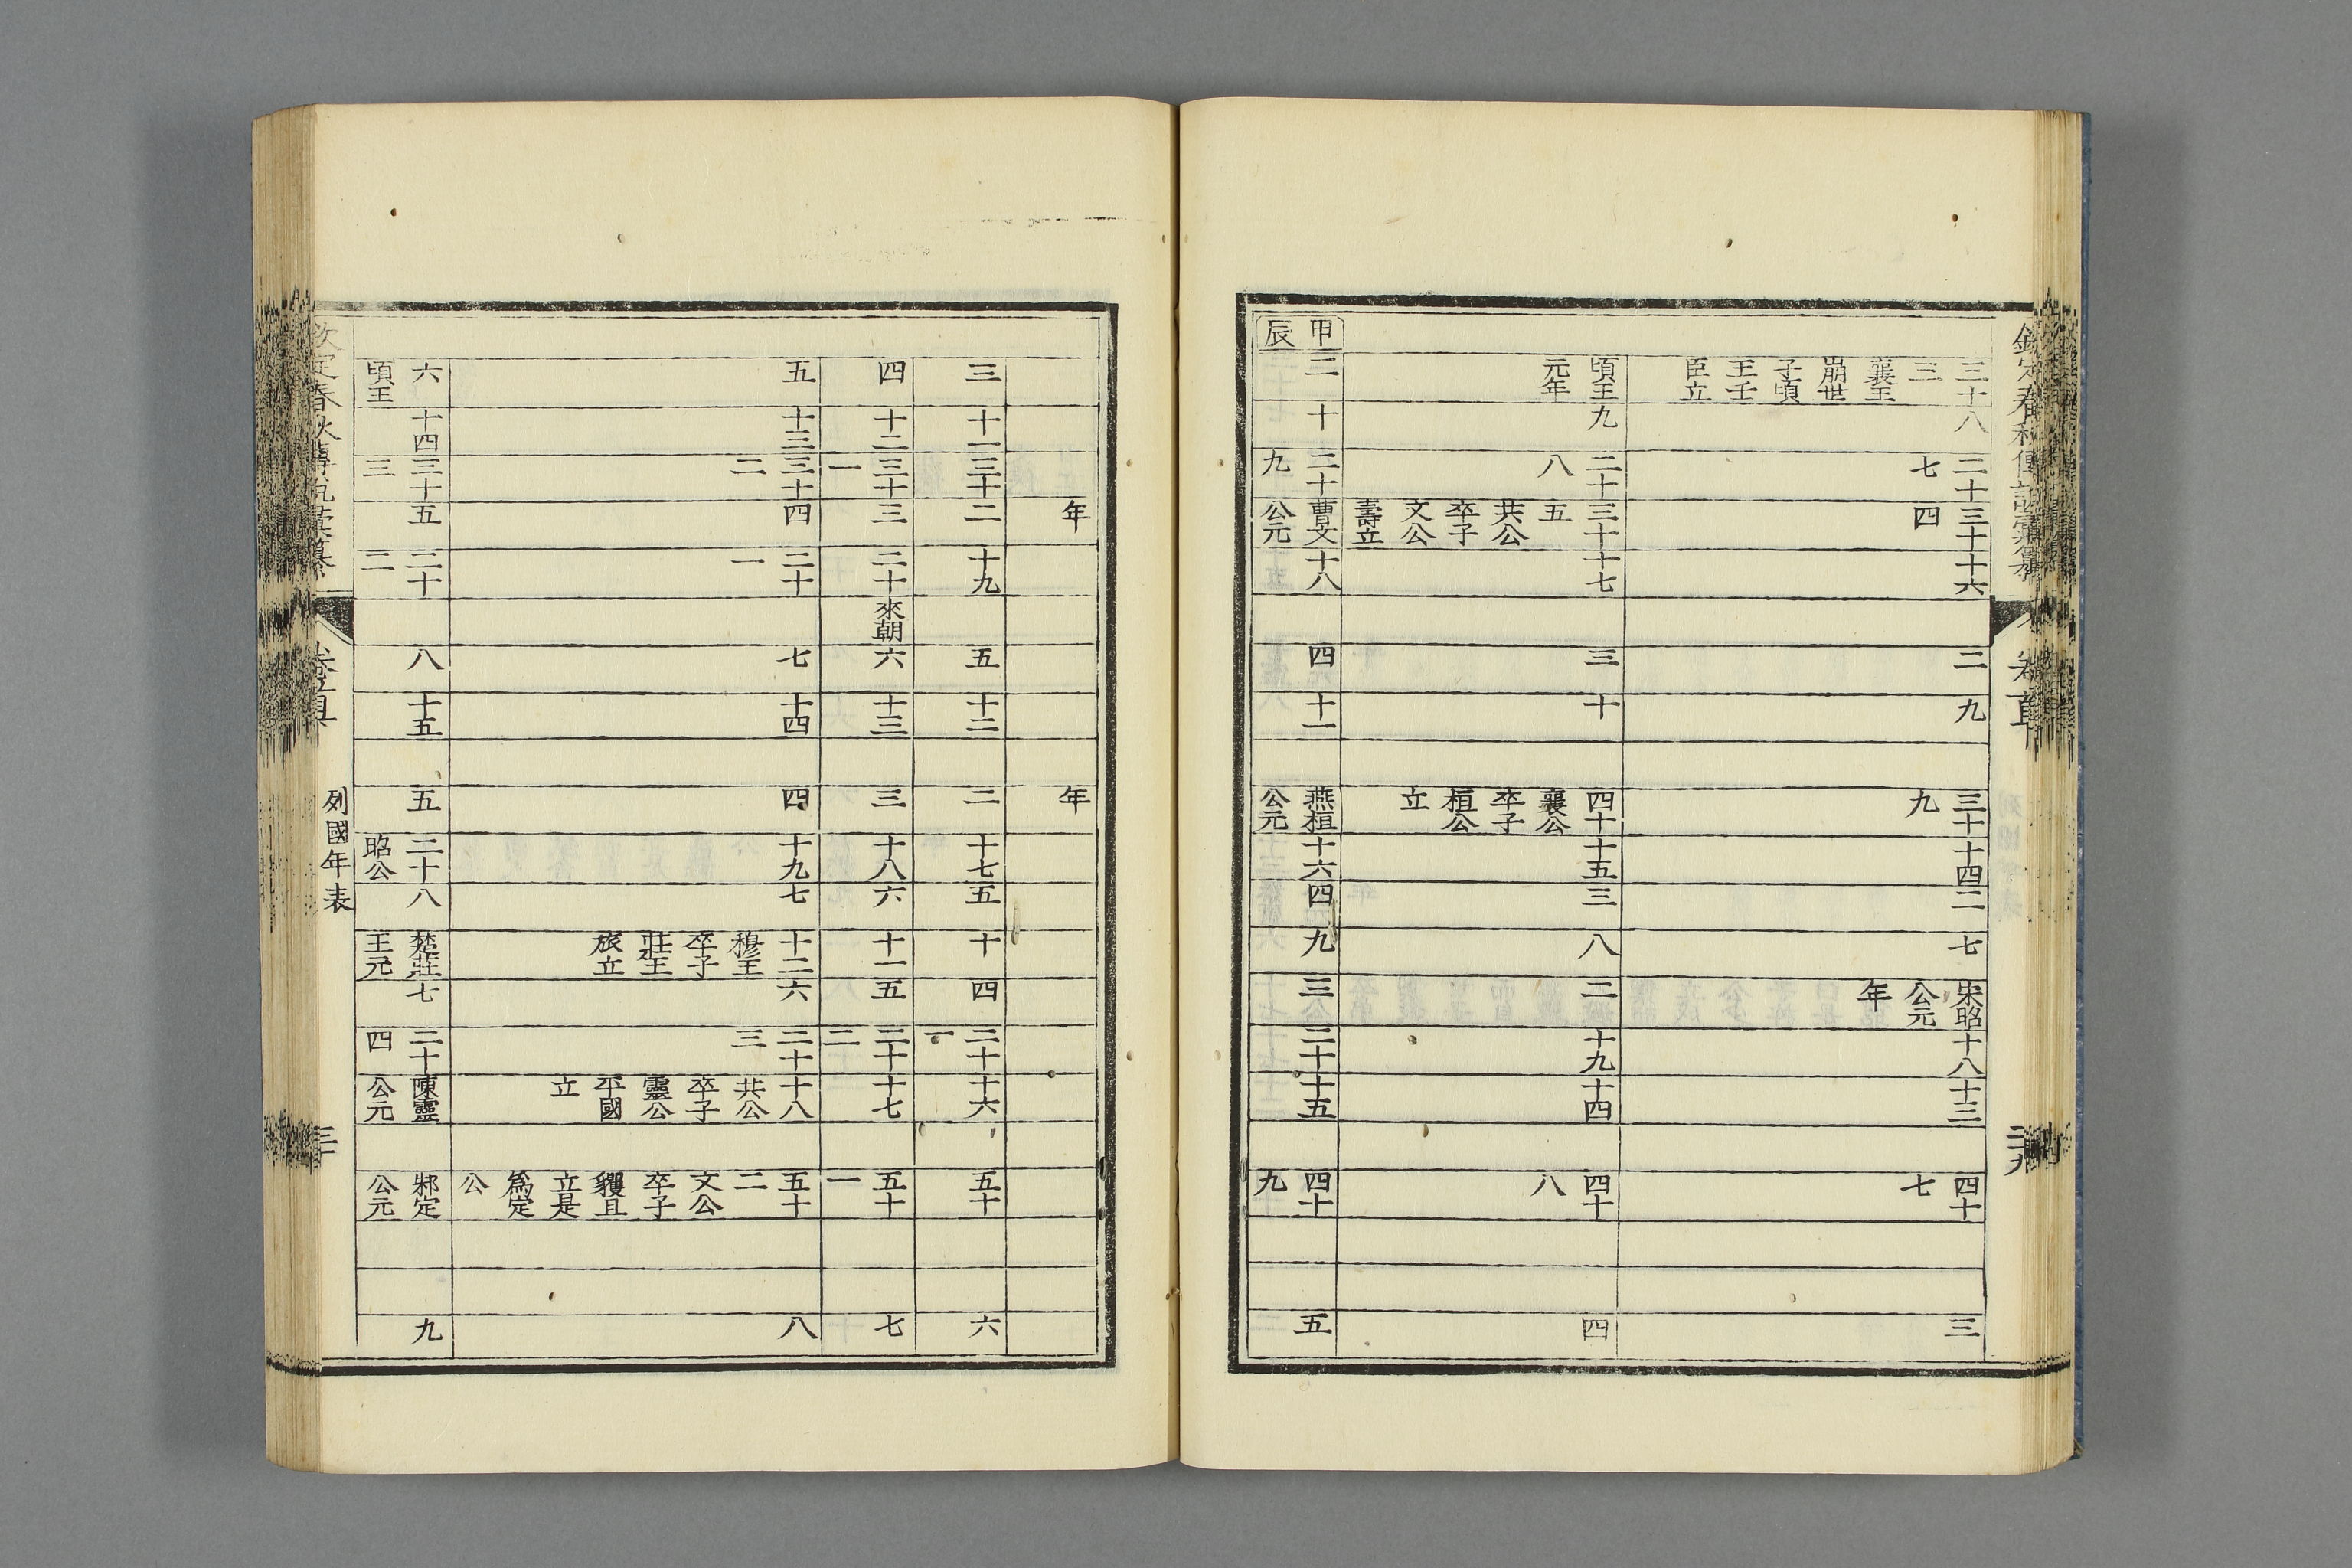 欽定春秋傳說彙纂 卷首 二十九
三十 八 二十 三十 十六 二 九 三十 十四 二 七 宋昭 十八 十三 四十 三
三 七 四 九 公元 七
襄王 年
崩世
子頃
王壬
臣立
頃王 九 二十 三十 十七 三 十 四十 十五 三 八 二 十九 十四 四十 四
元年 八 五 襄公 八
共公 卒子
卒子 桓公
文公 立
壽立
甲 二 十 三十 曹文 十八 四 十一 燕桓 十六 四 九 三 二十 十五 四十 五
辰 九 公元 公元 九
年 年
三 十一 三十 二 十九 五 十二 二 十七 五 十 四 二十 十六 五十 六
一
四 十二 三十 三 二十 來朝 六 十三 三 十八 六 十一 五 二十 十七 五十 七
一 二 一
五 十三 三十 四 二十 七 十四 四 十九 七 十二 六 二十 十八 五十 八
二 一 穆王 三 共公 二
卒子 卒子 文公
莊王 靈公 卒子
旅立 平國 貜且
立 立是
爲定
公
六 十四 三十 五 二十 八 十五 五 二十 八 楚莊 七 二十 陳靈 邾定 九
頃王 三 二 昭公 王元 四 公元 公元
欽定春秋傳說彙纂 卷首 列國年表 三十